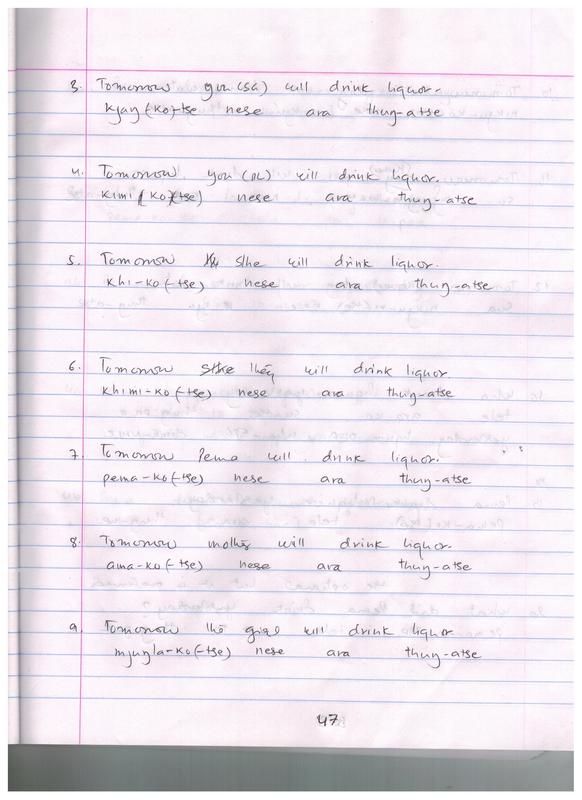 3. Tomorrow you (sg) will drink liquor.
kjaŋ (ko)-tse nese ara thuŋ-atse
4. Tomorrow you (pl) will drink liquor.
kimi (ko)(tse) nese ara thuŋ-atse
5. Tomorrow s/he will drink liquor.
khi-ko (-tse) nese ara thuŋ-atse
6. Tomorrow they will drink liquor
khimi-ko (-tse) nese ara thuŋ-atse
7. Tomorrow Pema will drink liquor.
pema-ko (-tse) nese ara thuŋ-atse
8. Tomorrow mother will drink liquor.
ama-ko (-tse) nese ara thuŋ-atse
9. Tomorrow the girl will drink liquor
mjuŋla-ko (-tse) nese ara thuŋ-atse
47